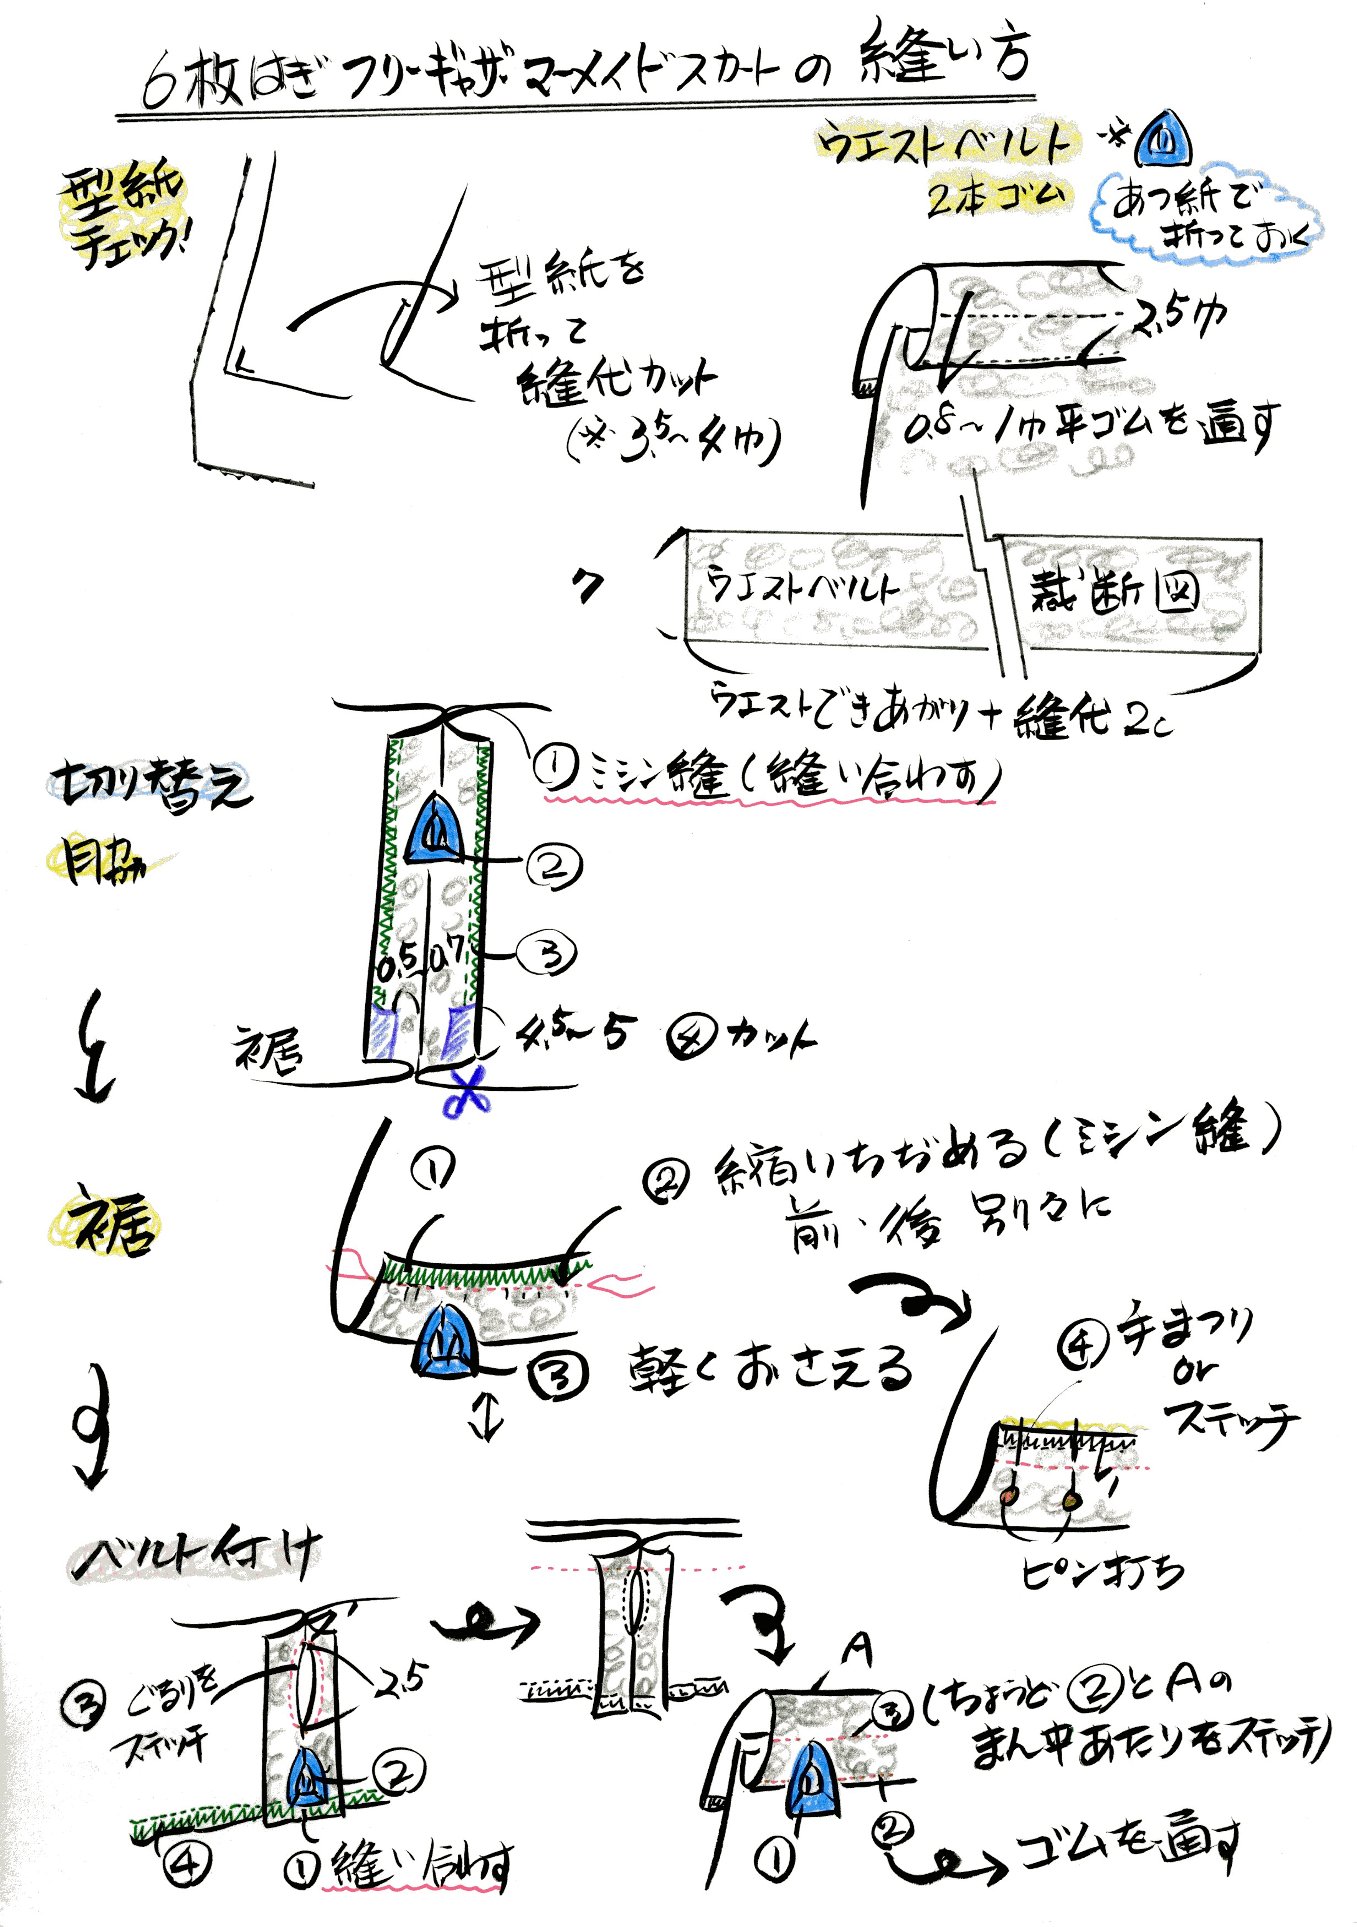 6枚はぎフリーギャザーマーメイドスカートの縫い方
型紙
チェック!
型紙を
折って
縫代カット
(※3.5~4巾)
ウエストベルト
2本ゴム
※
あつ紙で
折っておく
2.5巾
0.8~1巾平ゴムを通す
7
ウエストベルト
裁断図
ウエストできあがり+縫代2c
切り替え
脇
①ミシン縫(縫い合わす)
②
③
0.5
0.7
裾
4.5~5
④カット
裾
①
②縮いちぢめる(ミシン縫)
前・後 別々に
③軽くおさえる
④手まつり
or
ステッチ
ピン打ち
ベルト付け
③ぐるりを
ステッチ
2.5
②
④
①縫い合わす
A
③(ちょうど②とAの
まん中あたりをステッチ)
①
②
ゴムを通す